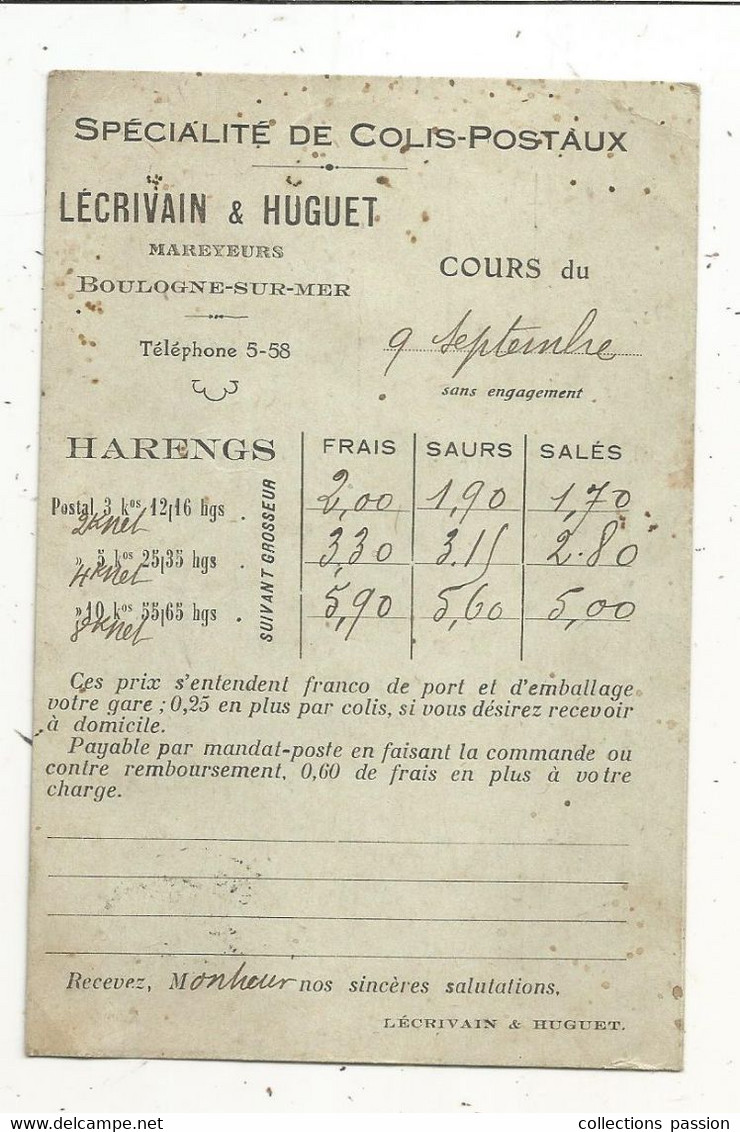 SPÉCIALITÉ DE COLIS-POSTAUX
LÉCRIVAIN & HUGUET
MAREYEURS
BOULOGNE-SUR-MER
Téléphone 5-58
COURS du
9 Septembre
sans engagement
HARENGS FRAIS SAURS SALÉS
SUIVANT GROSSEUR
Postal 3 kos 12/16 hgs . 2,00 1,90 1,70
2k net
» 5 kos 25/35 hgs . 3,30 3.15 2.80
4k net
» 10 kos 55/65 hgs . 5,90 5,60 5,00
8k net
Ces prix s'entendent franco de port et d'emballage
votre gare ; 0,25 en plus par colis, si vous désirez recevoir
à domicile.
Payable par mandat-poste en faisant la commande ou
contre remboursement, 0,60 de frais en plus à votre
charge.
Recevez, Monsieur nos sincères salutations,
LÉCRIVAIN & HUGUET.
collections passion